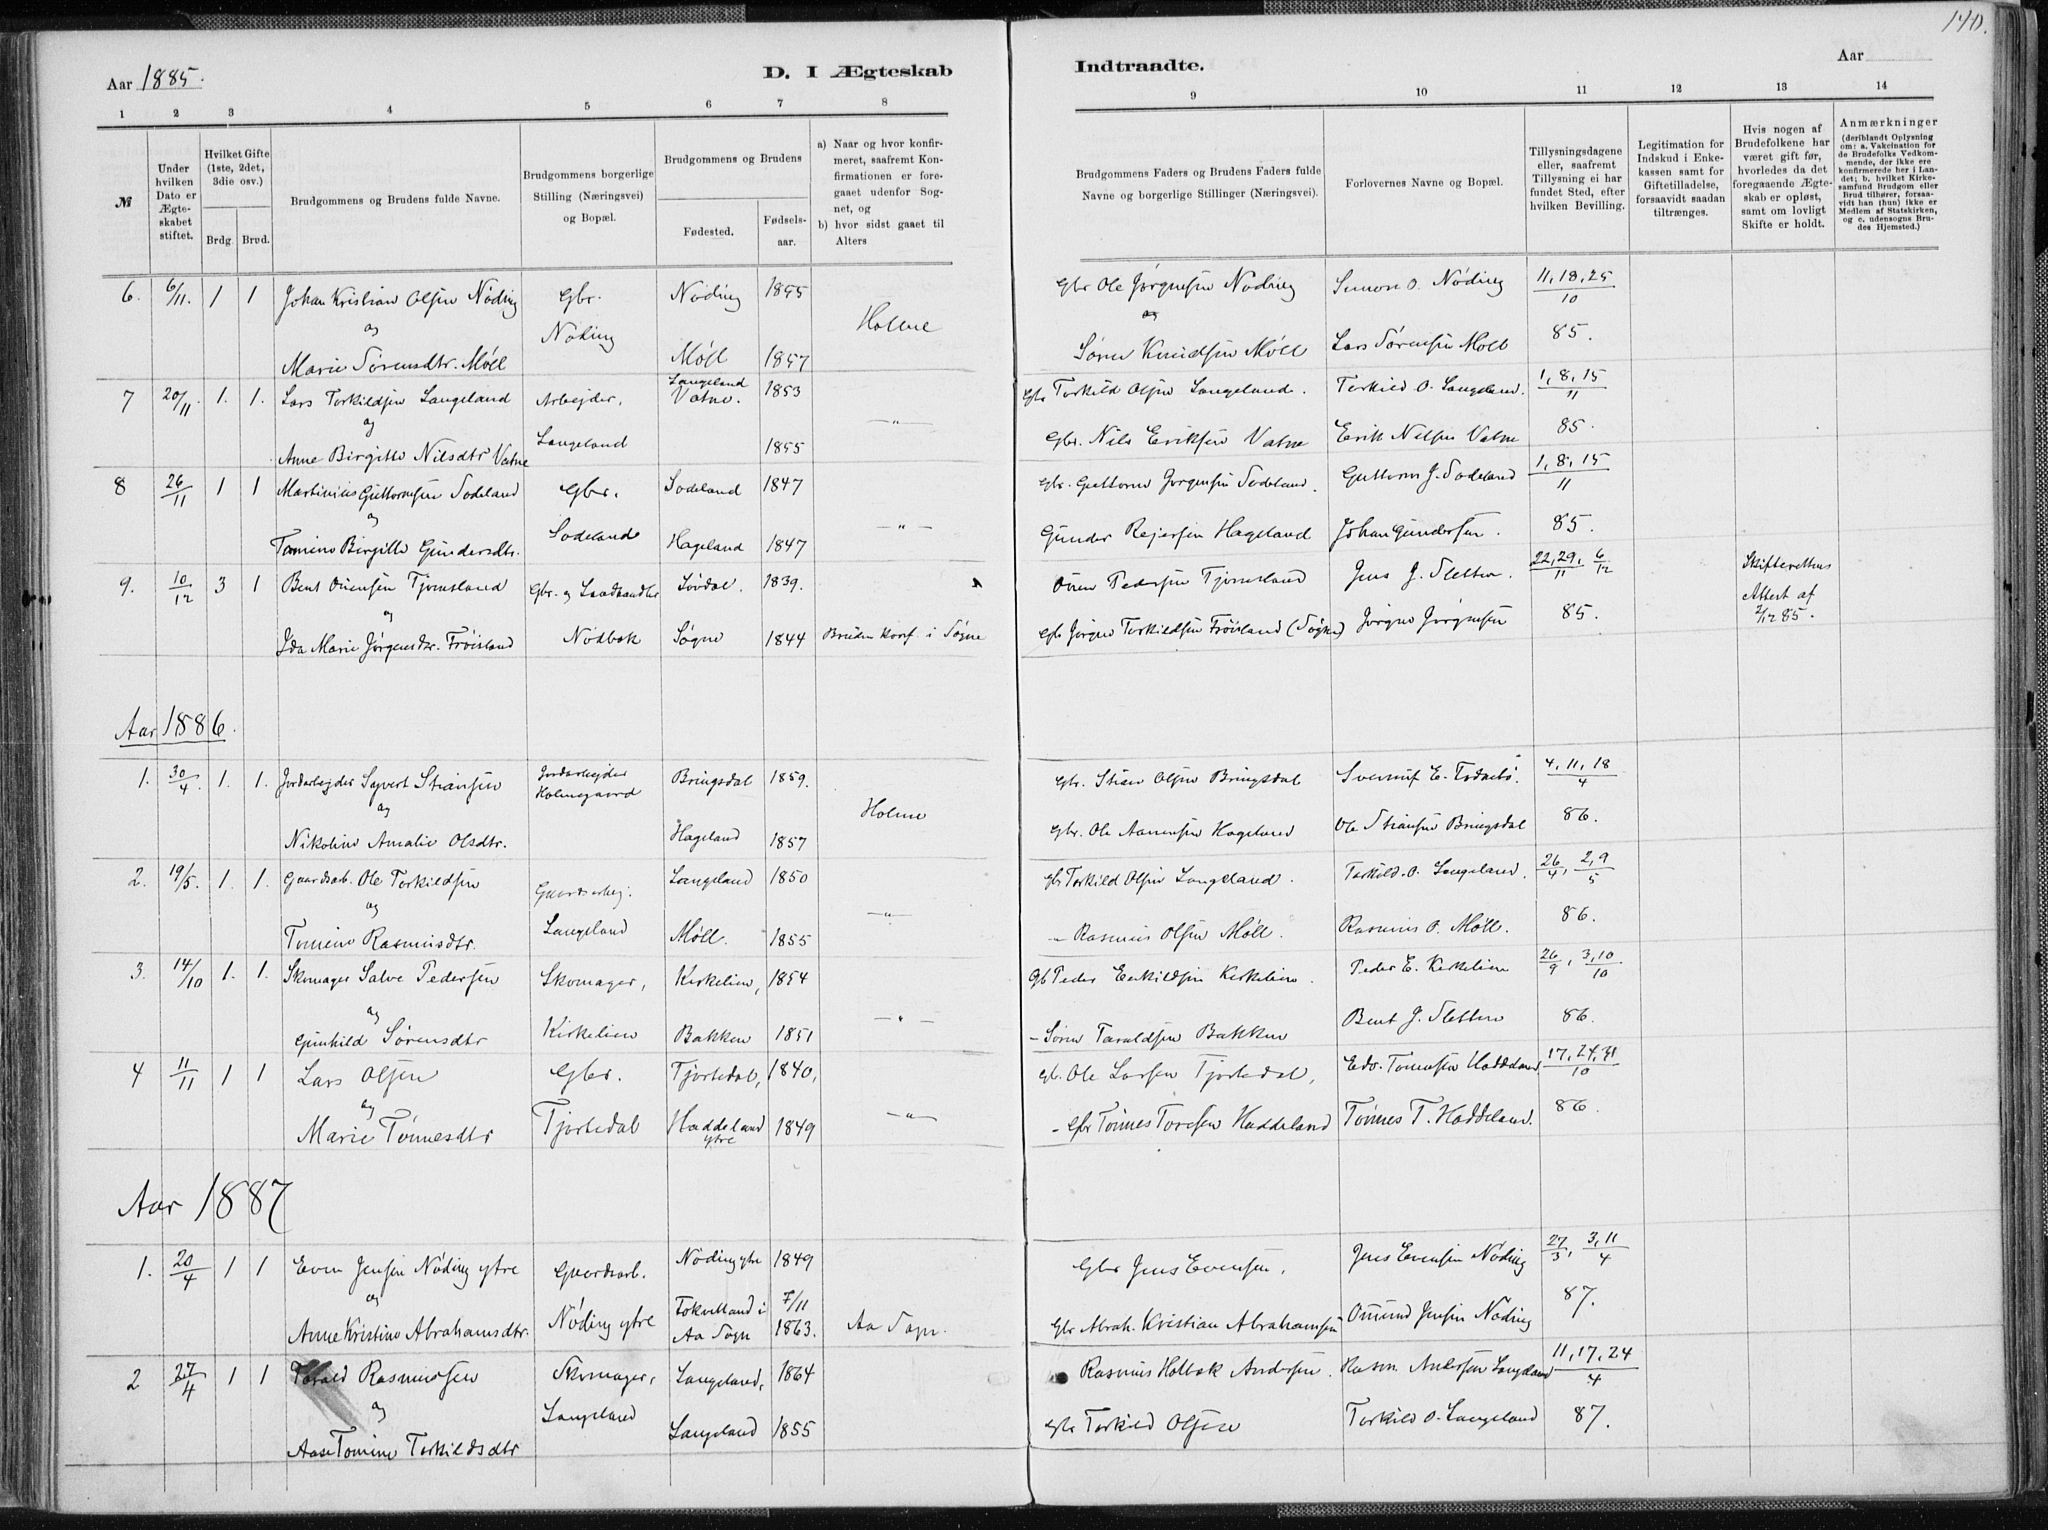 140.
Aar 1885.
D. I Ægteskab
Indtraadte.
Aar
1 2 3 4 5 6 7 8
9 10 11 12 13 14
№
Under hvilken Dato er Ægteskabet stiftet.
Hvilket Gifte (1ste, 2det, 3die osv.)
Brdg. Brud.
Brudgommens og Brudens fulde Navne.
Brudgommens borgerlige Stilling (Næringsvei) og Bopæl.
Brudgommens og Brudens
Fødested.
Fødselsaar.
a) Naar og hvor konfirmeret, saafremt Konfirmationen er foregaaet udenfor Sognet, og
b) hvor sidst gaaet til Alters
Brudgommens Faders og Brudens Faders fulde Navne og borgerlige Stillinger (Næringsvei).
Forlovernes Navne og Bopæl.
Tillysningsdagene eller, saafremt Tillysning ei har fundet Sted, efter hvilken Bevilling.
Legitimation for Indskud i Enkekassen samt for Giftetilladelse, forsaavidt saadan tiltrænges.
Hvis nogen af Brudefolkene har været gift før, hvorledes da det foregaaende Ægteskab er opløst, samt om lovligt Skifte er holdt.
Anmærkninger (deriblandt Oplysning om: a. Vakcination for de Brudefolks Vedkommende, der ikke ere konfirmerede her i Landet; b. hvilket Kirkesamfund Brudgom eller Brud tilhører, forsaavidt han (hun) ikke er Medlem af Statskirken, og c. udensogns Brudes Hjemsted.)
6. 6/11. 1 1 Johan Kristian Olsen Nøding Gbr. Nøding 1855 Gbr Ole Jørgensen Nøding Simon O. Nøding 11, 18, 25/10
og Nøding Holme og
Marie Sørensdtr. Møll Møll 1857 Søren Knudsen Møll Lars Sørensen Møll 85.
7 20/11. 1. 1. Lars Torkildsen Langeland Arbejder, Langeland Vatne. 1853 Gbr Torkild Olsen Langeland. Torkild O. Langeland. 1, 8, 15/11
og Langeland — " —
Anne Birgitte Nilsdtr Vatne 1855 Gbr. Nils Eriksen Vatne Erik Nilsen Vatne 85.
8 26/11 1 1 Martinius Guttormsen Sodeland Gbr. Sodeland 1847 Gbr. Guttorm Jørgensen Sodeland. Guttorm J. Sodeland 1, 8, 15/11
og Sodeland — " —
Tomine Birgitte Gundersdtr. Hageland 1847 Gunder Rejersen Hageland Johan Gundersen. 85.
9. 10/12 3 1 Bent Ouensen Tjomsland Gbr. og Landhandler Løvdal. 1839. Ouen Pedersen Tjomsland Jens J. Sletten. 22, 29/11, 6/12 Skifterettens
og Attest af
Ida Marie Jørgensdtr. Frøisland Nødbek Søgne 1844 Bruden konf. i Søgne Gbr Jørgen Torkildsen Frøisland (Søgne) Jørgen Jørgensen 85. 2/12 85.
Aar 1886.
1. 30/4. 1. 1. Jordarbejder Syvert Stiansen Jordarbejder Holmegaard Bringsdal 1859. Gbr. Stian Olsen Bringsdal 4, 11, 18/4
og Holme
Nikoline Amalie Olsdtr. Hageland 1857 Gbr. Ole Aanensen Hageland Ole Stiansen Bringsdal 86.
2. 19/5. 1. 1. Gaardsarb. Ole Torkildsen Gaardsarbej. Langeland 1850 Gbr Torkild Olsen Langeland. Torkild. O. Langeland. 26/4, 2, 9/5
og Langeland — " —
Tomine Rasmusdtr. Møll. 1855 — Rasmus Olsen Møll. Rasmus O. Møll. 86.
3. 14/10 1. 1. Skomager Salve Pedersen Skomager, Kirkelien, 1854 Gb Peder Enkildsen Kirkelien. Peder E. Kirkelien 26/9, 3, 10/10
og Kirkelien — " —
Gunhild Sørensdtr Bakken 1851 — Søren Taraldsen Bakken Bent J. Sletten 86.
4 11/11 1 1 Lars Olsen Gbr. Tjortedal, 1840, Gb. Ole Larsen Tjortedal, Edv. Tomesen Haddeland 17, 24, 31/10
og Tjortedal — " —
Marie Tønnesdtr Haddeland ytre 1849 — Gbr Tønnes Toresen Haddeland Tønnes T. Haddeland. 86.
Aar 1887
1. 20/4 1 1 Even Jensen Nøding ytre Gaardsarb. Nøding ytre 1849 Gbr Jens Evensen. Jens Evensen Nøding 27/3, 3, 11/4
og Nøding ytre
Anne Kristine Abrahamsdtr. Aa Sogn 7/11 1863. Aa Sogn. Gbr Abrah. Kristian Abrahamsen Omund Jensen Nøding 87.
2 27/4 1 1 Tarald Rasmussen Skomager, Langeland, 1864 Rasmus Holbæk Andersen. Rasm. Andersen Langeland 11, 17, 24/4
og Langeland
Aase Tomine Torkildsdtr Langeland 1855 Gbr Torkild Olsen Torkild O. Langeland 87.